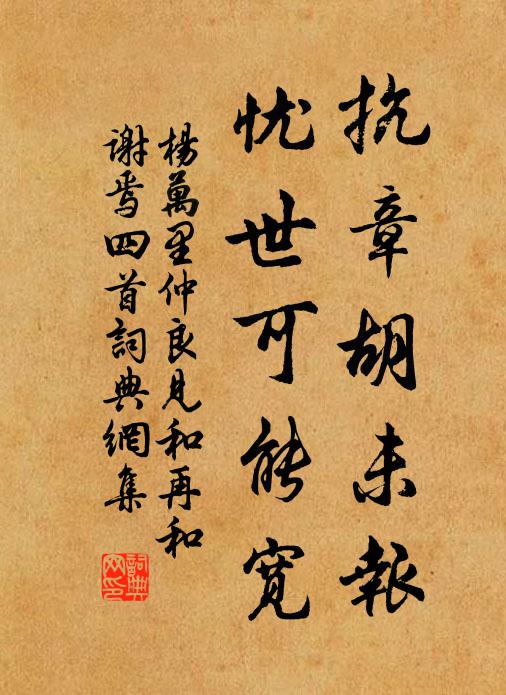 抗章胡未報
忧世可能寬
楊萬里仲良見和再和
謝焉四首詞典網集
詞典网印